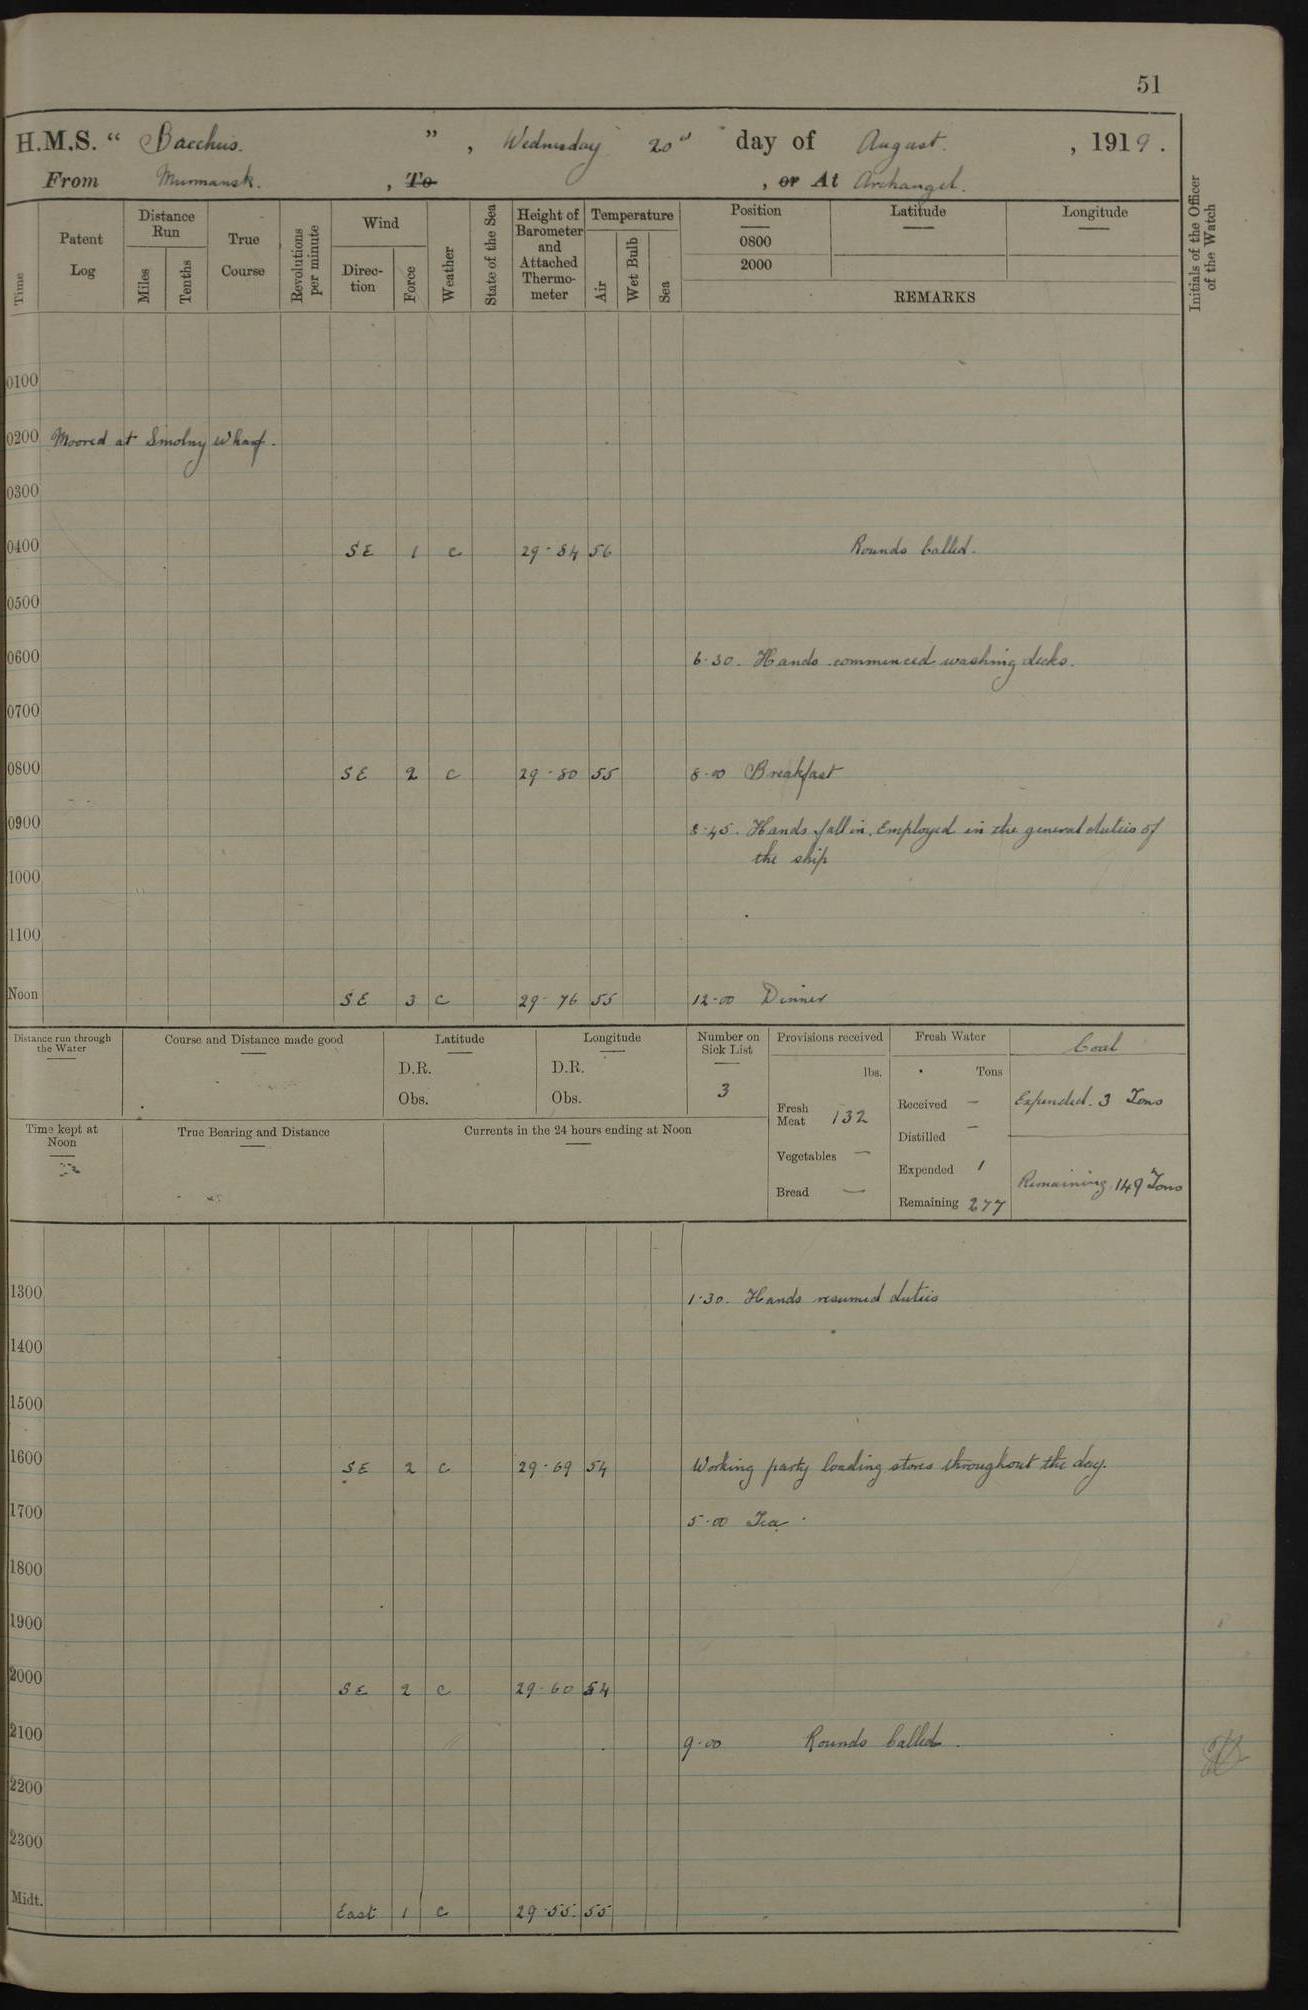 51
H.M.S. “ Bacchus. ” , Wednesday 20th day of August. , 1919.
From Murmansk. , To , or At Archangel.
Time
Patent Log
Distance Run
Miles
Tenths
True Course
Revolutions per minute
Wind
Direc-tion
Force
Weather
State of the Sea
Height of Barometer and Attached Thermo-meter
Temperature
Air
Wet Bulb
Sea
Position
0800
2000
Latitude
Longitude
REMARKS
Initials of the Officer of the Watch
0100
0200 Moored at Smolny Wharf.
0300
0400 SE 1 c 29-84 56 Rounds Called.
0500
0600 6-30. Hands commenced washing decks.
0700
0800 SE 2 c 29-80 55 8-00 Breakfast
0900 8-45. Hands fall in. Employed in the general duties of
the ship
1000
1100
Noon SE 3 c 29-76 55 12-00 Dinner
Distance run through the Water
Course and Distance made good
Latitude
D.R.
Obs.
Longitude
D.R.
Obs.
Number on Sick List
3
Provisions received
lbs.
Fresh Meat 132
Vegetables —
Bread —
Fresh Water
Tons
Received —
Distilled —
Expended 1
Remaining 277
Coal
Expended. 3 Tons
Remaining. 149 Tons
Time kept at Noon
True Bearing and Distance
Currents in the 24 hours ending at Noon
1300 1-30. Hands resumed duties
1400
1500
1600 SE 2 c 29-69 54 Working party loading stores throughout the day.
1700 5-00 Tea
1800
1900
2000 SE 2 c 29-60 54
2100 9-00 Rounds Called.
2200
2300
Midt. East 1 c 29-55. 55